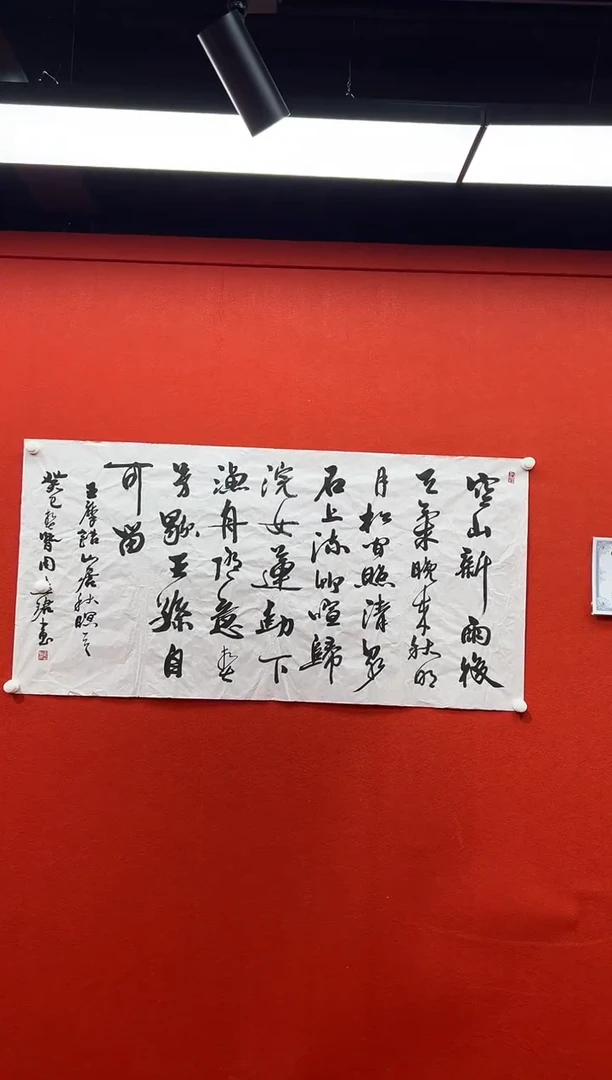 空山新雨後
天氣晚来秋明
月松间照清泉
石上流竹喧歸
浣女蓮動下
漁舟随意春
芳歇王孫自
可留
王摩詰山居秋暝
癸巳春賢周書